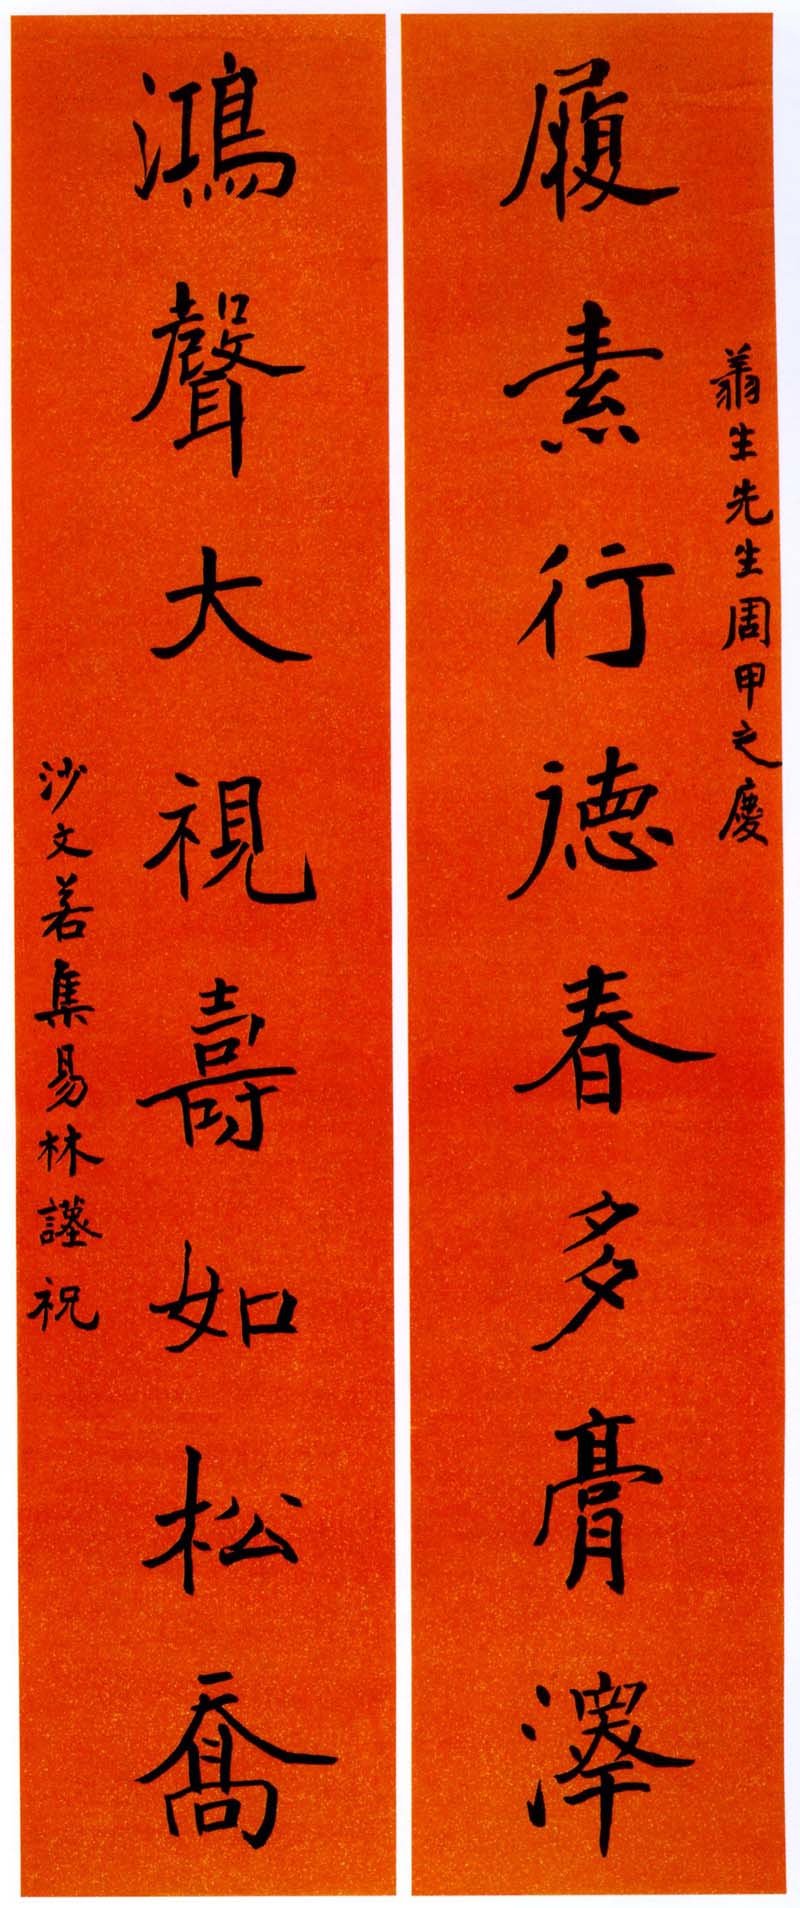 生先生周甲之慶
履素行德春多膏澤
鴻聲大視壽如松喬
沙文若集易林謹祝